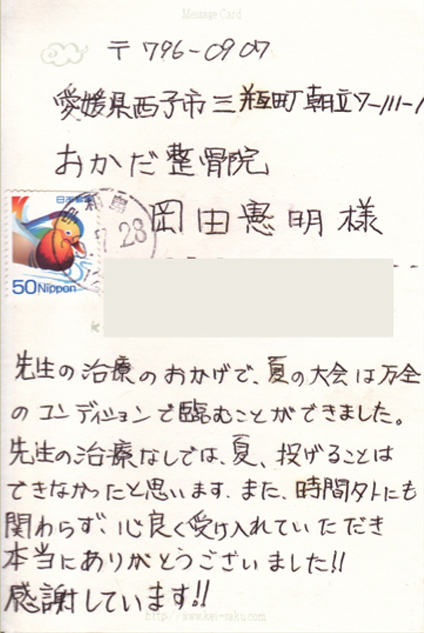 Message Card
〒796-0907
愛媛県西予市三瓶町朝立7-111-1
おかだ整骨院
岡田憲明様
日本郵便
50 Nippon
28
先生の治療のおかげで、夏の大会は万全
のコンディションで臨むことができました。
先生の治療なしでは、夏、投げることは
できなかったと思います。また、時間外にも
関わらず、心良く受け入れていただき
本当にありがとうございました!!
感謝しています!!
http://www.kei-raku.com